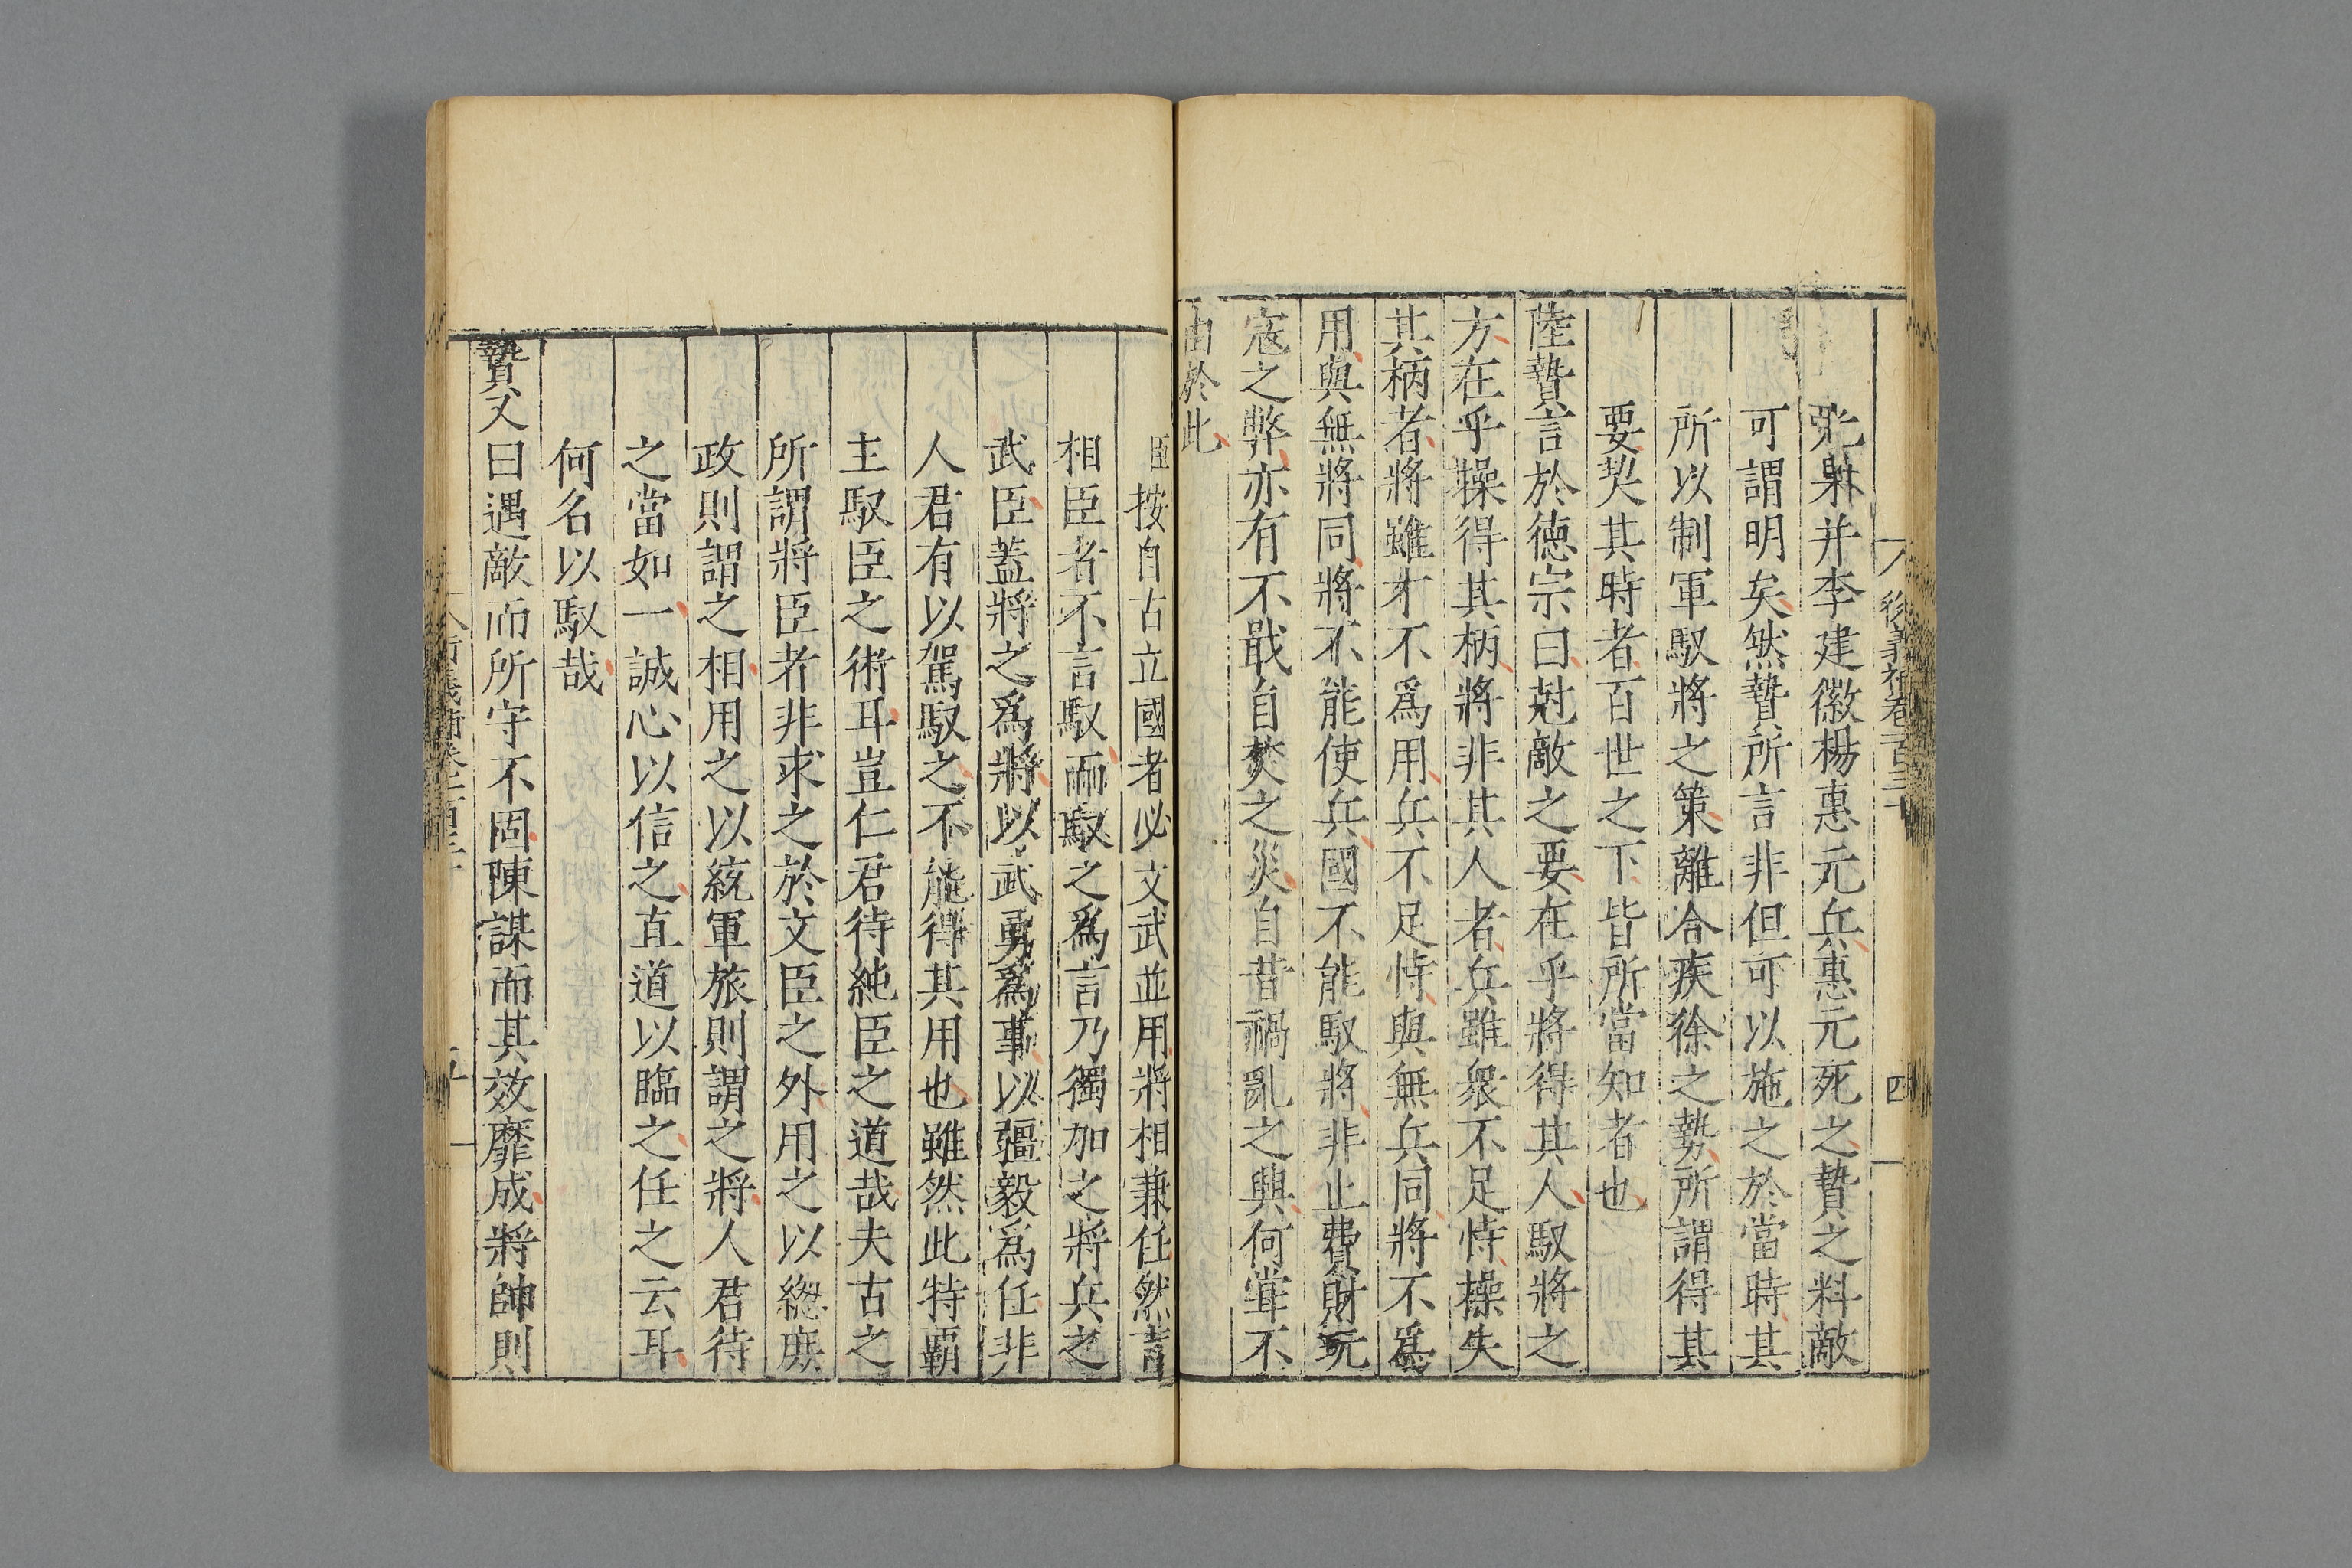 光果并李建徽楊惠元兵惠元死之贄之料敵
可謂明矣然贄所言非但可以施之於當時其
所以制軍馭將之策離合疾徐之勢所謂得其
要契其時者百世之下皆所當知者也
陸贄言於德宗曰尅敵之要在乎將得其人馭將之
方在乎操得其柄將非其人者兵雖衆不足恃操失
其柄者將雖才不爲用兵不足恃與無兵同將不爲
用與無將同將不能使兵國不能馭將非止費財玩
寇之弊亦有不戢自焚之災自昔禍亂之興何甞不
由於此
臣按自古立國者必文武並用將相兼任然言
相臣者不言馭而馭之爲言乃獨加之將兵之
武臣蓋將之爲將以武勇爲事以彊毅爲任非
人君有以駕馭之不能得其用也雖然此特霸
主馭臣之術耳豈仁君待純臣之道哉夫古之
所謂將臣者非求之於文臣之外用之以緫庶
政則謂之相用之以統軍旅則謂之將人君待
之當如一誠心以信之直道以臨之任之云耳
何名以馭哉
贄又曰遇敵而所守不固陳謀而其效靡成將帥則